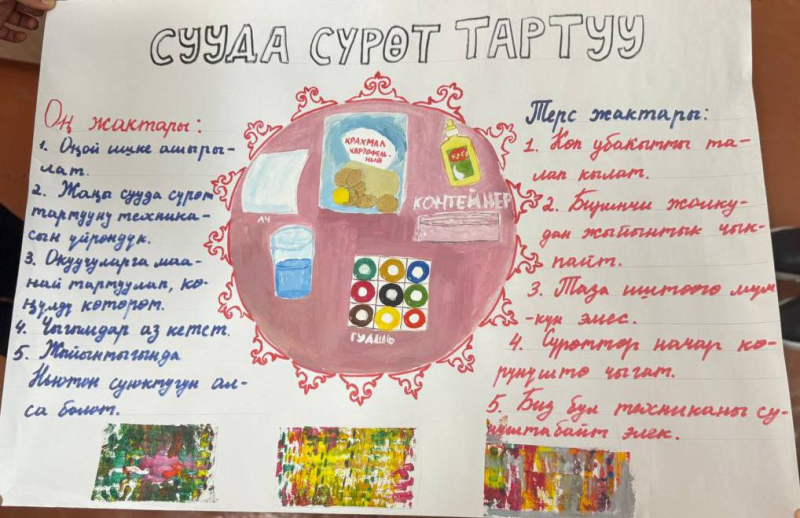 СУУДА СУРӨТ ТАРТУУ
Оң жактары:
1. Оңой ишке ашыры-
лат.
2. Жаңы сууда сурөт
тартууну техника-
сын үйрөндүк.
3. Окуучуларга маа-
най тартуулап, кө-
ңүлдү көтөрөт.
4. Чыгымдар аз кетет.
5. Жыйынтыгында
Ньютон суюктугун ал-
са болот.
КРАХМАЛ
КАРТОФЕЛЬ-
НЫЙ
КЛЕЙ
КОНТЕЙНЕР
А4
ГУАШЬ
Терс жактары:
1. Көп убакытты та-
лап кылат.
2. Биринчи жолку-
дан жыйынтык чык-
пайт.
3. Таза иштөөгө мүм-
-күн эмес.
4. Сүрөттөр начар кө-
рүнүштө чыгат.
5. Биз бул техниканы су-
нуштабайт элек.